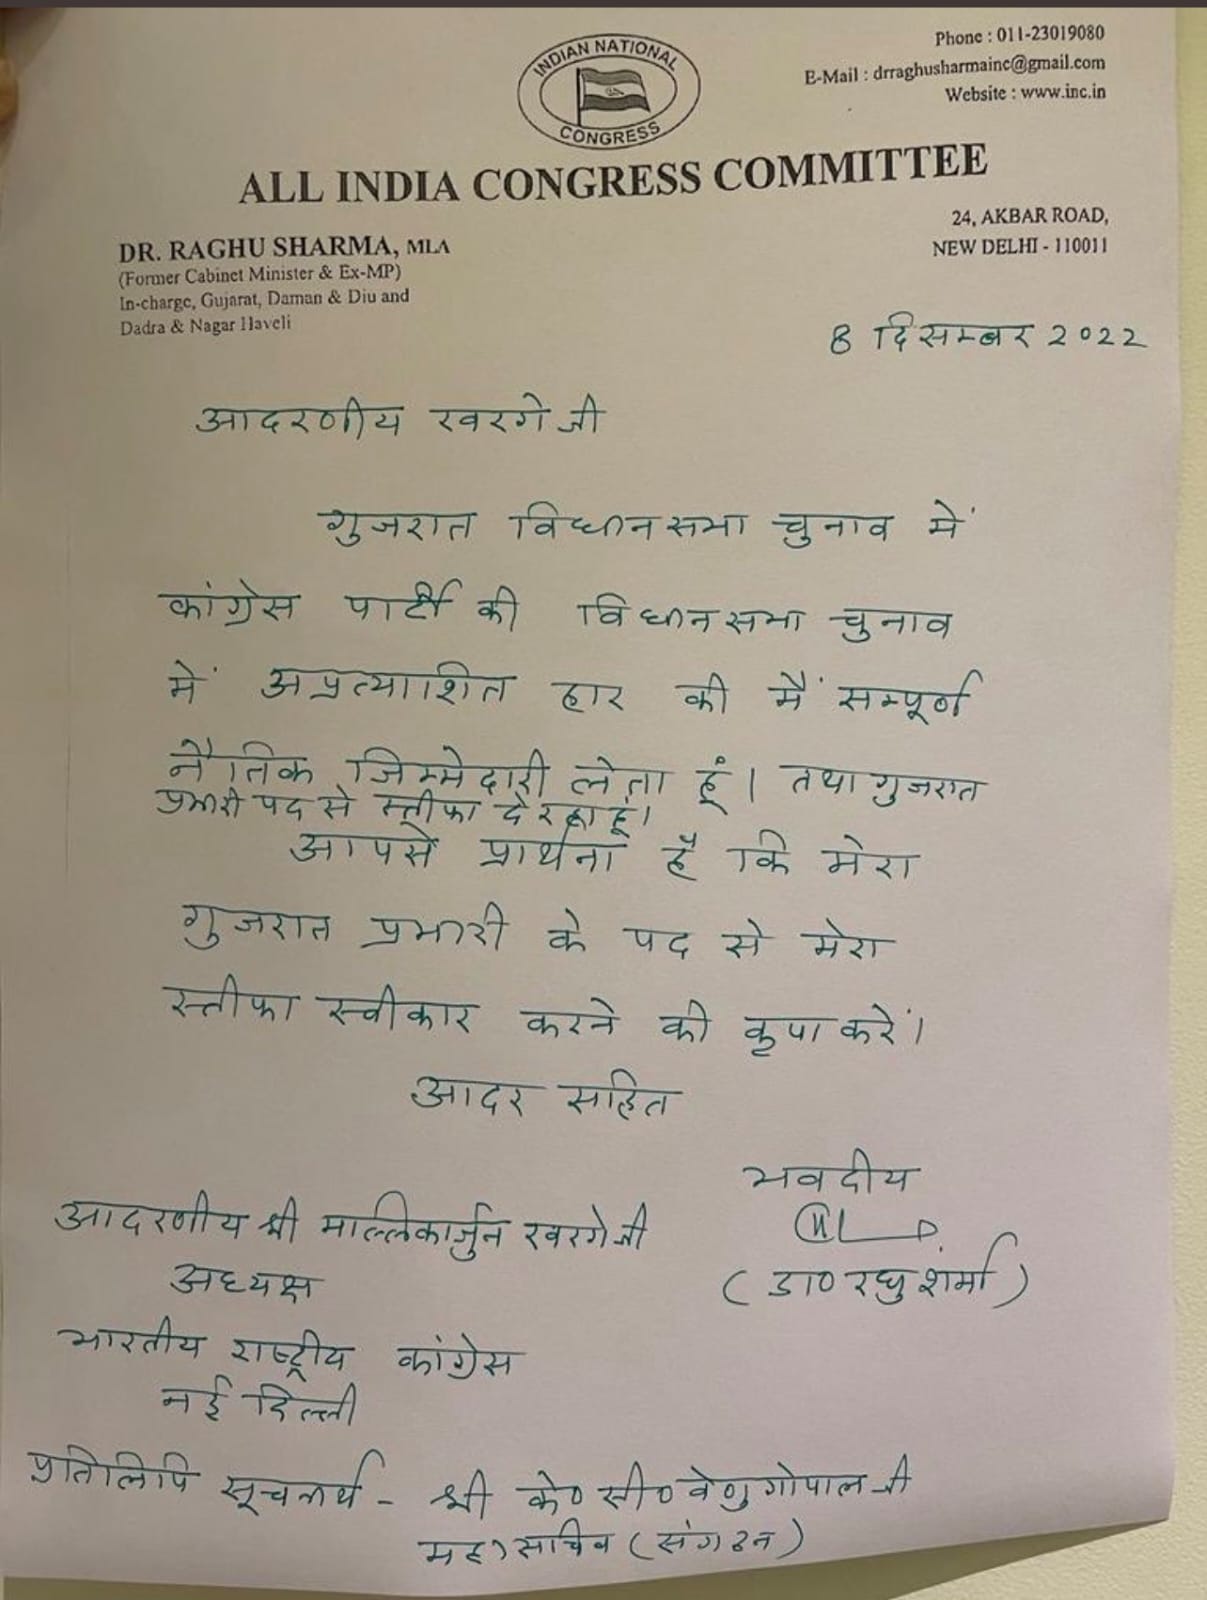 Phone : 011-23019080
E-Mail : drraghusharmainc@gmail.com
Website : www.inc.in
INDIAN NATIONAL
CONGRESS
ALL INDIA CONGRESS COMMITTEE
DR. RAGHU SHARMA, MLA
(Former Cabinet Minister & Ex-MP)
In-charge, Gujarat, Daman & Diu and
Dadra & Nagar Haveli
24, AKBAR ROAD,
NEW DELHI - 110011
8 दिसम्बर 2022
आदरणीय खरगे जी
गुजरात विधानसभा चुनाव में
कांग्रेस पार्टी की विधानसभा चुनाव
में अप्रत्याशित हार की मैं सम्पूर्ण
नैतिक जिम्मेदारी लेता हूं। तथा गुजरात
प्रभारी पद से स्तीफा दे रहा हूं।
आपसे प्रार्थना है कि मेरा
गुजरात प्रभारी के पद से मेरा
स्तीफा स्वीकार करने की कृपा करें।
आदर सहित
भवदीय
(डा० रघु शर्मा)
आदरणीय श्री मल्लिकार्जुन खरगे जी
अध्यक्ष
भारतीय राष्ट्रीय कांग्रेस
नई दिल्ली
प्रतिलिपि सूचनार्थ - श्री के० सी० वेणुगोपाल जी
महासचिव (संगठन)